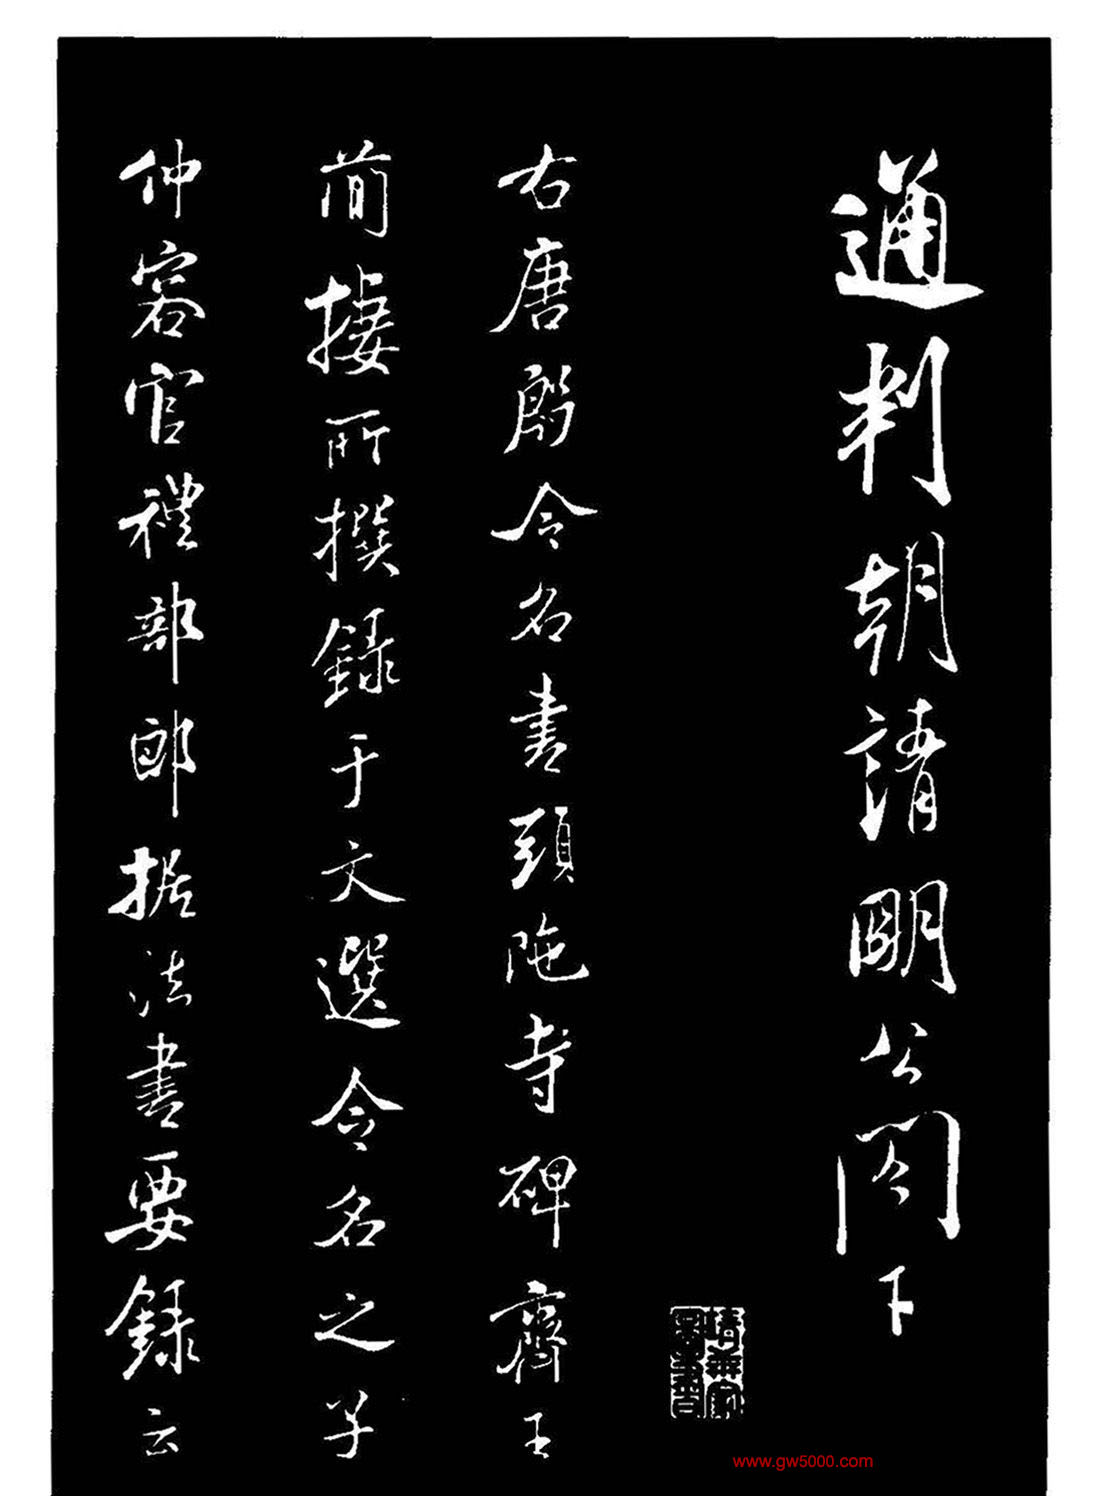 通判朝請明公閤下
右唐殷令名書頭陁寺碑齊王
簡棲所撰錄于文選令名之子
仲容官禮部郎据法書要錄云
www.gw5000.com